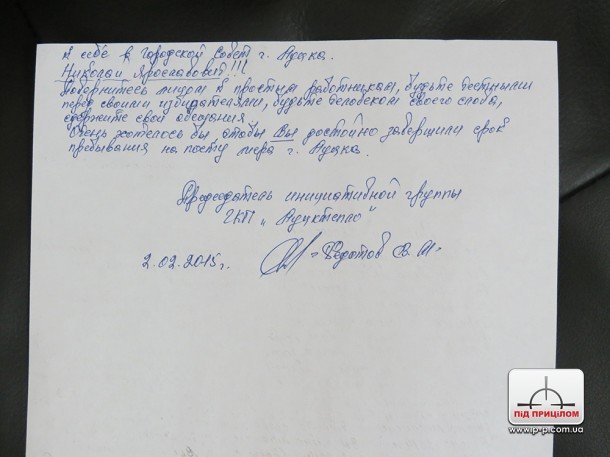 к себе в Городской Совет г. Луцка.
Николай Ярославович!!!
Повернитесь лицом к простым работникам, будьте честными
перед своими избирателями, будьте человеком своего слова,
сдержите свои обещания.
Очень хотелось бы, чтобы Вы достойно завершили срок
пребывания на посту мера г. Луцка.
Председатель инициативной группы
ГКП „Луцктепло"
2.02.2015г. Федотов В.И.
ПІД ПРИЦІЛОМ
www.ip-p.com.ua